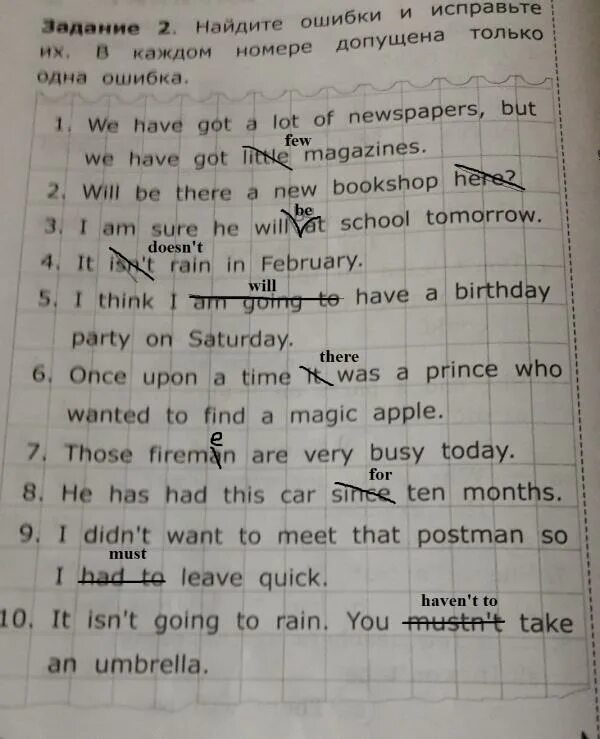 Задание 2. Найдите ошибки и исправьте
их. В каждом номере допущена только
одна ошибка.
1. We have got a lot of newspapers, but
few
we have got little magazines.
2. Will be there a new bookshop here?
be
3. I am sure he will at school tomorrow.
doesn't
4. It isn't rain in February.
will
5. I think I am going to have a birthday
party on Saturday.
there
6. Once upon a time it was a prince who
wanted to find a magic apple.
e
7. Those fireman are very busy today.
for
8. He has had this car since ten months.
9. I didn't want to meet that postman so
must
I had to leave quick.
haven't to
10. It isn't going to rain. You mustn't take
an umbrella.